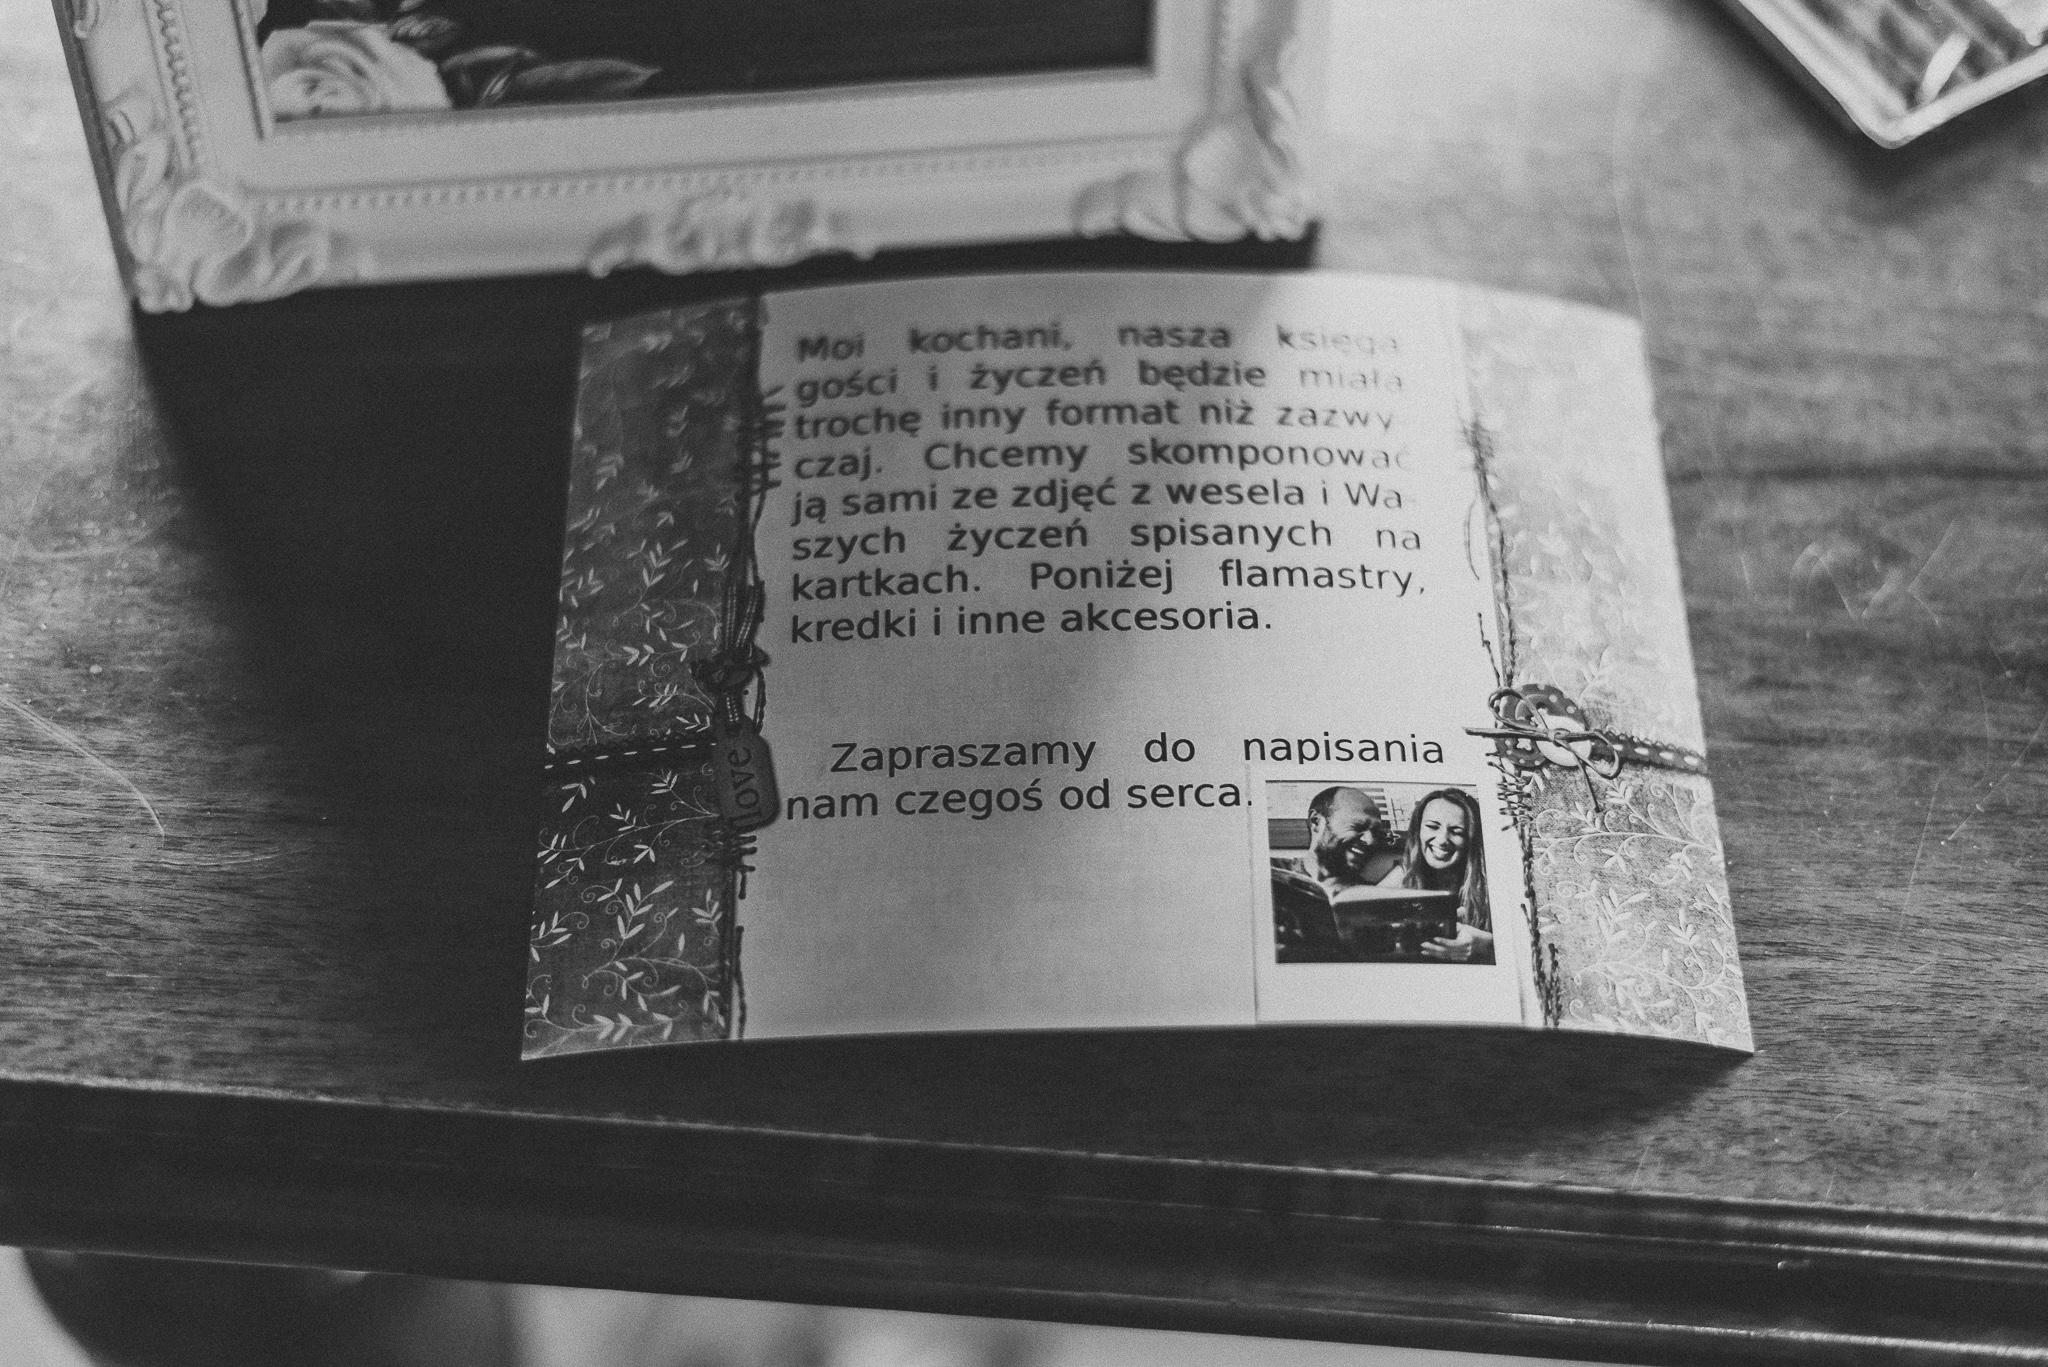 Moi kochani, nasza księga
gości i życzeń będzie miała
trochę inny format niż zazwy-
czaj. Chcemy skomponować
ją sami ze zdjęć z wesela i Wa-
szych życzeń spisanych na
kartkach. Poniżej flamastry,
kredki i inne akcesoria.
Zapraszamy do napisania
nam czegoś od serca.
love